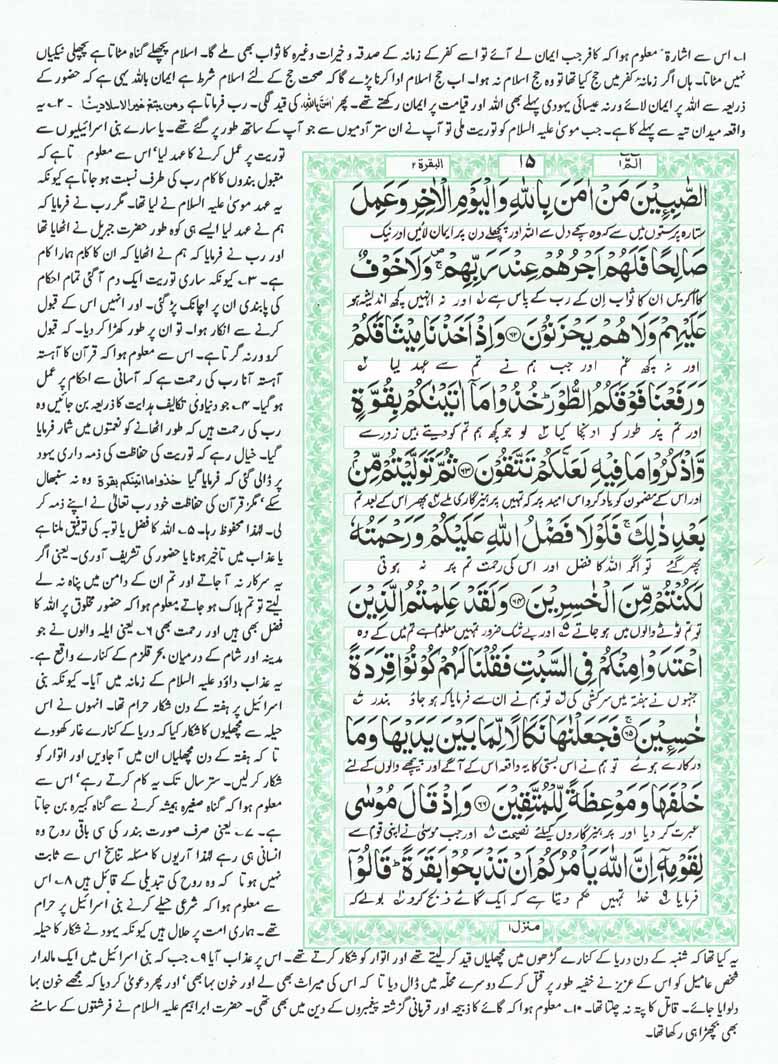 ۱۔ اس سے اشارۃً معلوم ہوا کہ کافر جب ایمان لے آئے تو اسے کفر کے زمانہ کے صدقہ و خیرات وغیرہ کا ثواب بھی ملے گا۔ اسلام پچھلے گناہ مٹاتا ہے پچھلی نیکیاں
نہیں مٹاتا۔ ہاں اگر زمانہ کفر میں حج کیا تھا تو وہ حج اسلام نہ ہوا۔ اب حج اسلام ادا کرنا پڑے گا کہ صحت حج کے لئے اسلام شرط ہے ایمان باللہ یہی ہے کہ حضور کے
ذریعہ سے اللہ پر ایمان لائے ورنہ عیسائی یہودی پہلے بھی اللہ اور قیامت پر ایمان رکھتے تھے۔ پھر اٰمن باللہ کی قید لگی۔ رب فرماتا ہے ومن یبتغ غیر الاسلام دینا ۔ ۲۔ یہ
واقعہ میدان تیہ سے پہلے کا ہے۔ جب موسیٰ علیہ السلام کو توریت ملی تو آپ نے ان ستر آدمیوں سے جو آپ کے ساتھ طور پر گئے تھے۔ یا سارے بنی اسرائیلیوں سے
الٓمّٓ ۱ ۱۵ البقرۃ ۲
الصّٰبِـِٕیْنَ مَنْ اٰمَنَ بِاللّٰهِ وَالْیَوْمِ الْاٰخِرِ وَعَمِلَ
ستارہ پرستوں میں سے کہ وہ سچے دل سے اللہ اور پچھلے دن پر ایمان لائیں اور نیک
صَالِحًا فَلَهُمْ اَجْرُهُمْ عِنْدَ رَبِّهِمْ ۖ وَلَا خَوْفٌ
کام کریں ان کا ثواب ان کے رب کے پاس ہے اور نہ انہیں کچھ اندیشہ ہو
عَلَیْهِمْ وَلَا هُمْ یَحْزَنُوْنَ ۶۲ وَاِذْ اَخَذْنَا مِیْثَاقَكُمْ
اور نہ کچھ غم اور جب ہم نے تم سے عہد لیا
وَرَفَعْنَا فَوْقَكُمُ الطُّوْرَ ؕ خُذُوْا مَاۤ اٰتَیْنٰكُمْ بِقُوَّةٍ
اور تم پر طور کو اونچا کیا لو جو کچھ ہم تم کو دیتے ہیں زور سے
وَّاذْكُرُوْا مَا فِیْهِ لَعَلَّكُمْ تَتَّقُوْنَ ۶۳ ثُمَّ تَوَلَّیْتُمْ مِّنْۢ
اور اس کے مضمون کو یاد کرو اس امید پر کہ تمہیں پرہیزگاری ملے پھر اس کے بعد تم
بَعْدِ ذٰلِكَ ۚ فَلَوْلَا فَضْلُ اللّٰهِ عَلَیْكُمْ وَرَحْمَتُهٗ
پھر گئے تو اگر اللہ کا فضل اور اس کی رحمت تم پر نہ ہوتی
لَكُنْتُمْ مِّنَ الْخٰسِرِیْنَ ۶۴ وَلَقَدْ عَلِمْتُمُ الَّذِیْنَ
تو تم ٹوٹے والوں میں ہو جاتے اور بے شک ضرور تمہیں معلوم ہے تم میں کے وہ
اعْتَدَوْا مِنْكُمْ فِی السَّبْتِ فَقُلْنَا لَهُمْ كُوْنُوْا قِرَدَةً
جنہوں نے ہفتہ میں سرکشی کی تو ہم نے ان سے فرمایا کہ ہو جاؤ بندر
خٰسِـِٕیْنَ ۚ ۶۵ فَجَعَلْنٰهَا نَكَالًا لِّمَا بَیْنَ یَدَیْهَا وَمَا
دھتکارے ہوئے تو ہم نے اس بستی کا یہ واقعہ اس کے آگے اور پیچھے والوں کے لئے
خَلْفَهَا وَمَوْعِظَةً لِّلْمُتَّقِیْنَ ۶۶ وَاِذْ قَالَ مُوْسٰی
عبرت کر دیا اور پرہیزگاروں کیلئے نصیحت اور جب موسیٰ نے اپنی قوم سے
لِقَوْمِهٖۤ اِنَّ اللّٰهَ یَاْمُرُكُمْ اَنْ تَذْبَحُوْا بَقَرَةً ؕ قَالُوْۤا
فرمایا خدا تمہیں حکم دیتا ہے کہ ایک گائے ذبح کرو بولے کہ
منزل ۱
توریت پر عمل کرنے کا عہد لیا، اس سے معلوم تا ہے کہ
مقبول بندوں کا کام رب کی طرف نسبت ہو جاتا ہے کیونکہ
یہ عہد موسیٰ علیہ السلام نے لیا تھا۔ مگر رب نے فرمایا کہ
ہم نے عہد لیا ایسے ہی کوہ طور حضرت جبریل نے اٹھایا تھا
اور رب نے فرمایا کہ ہم نے اٹھایا کہ ان کا کام ہمارا کام
ہے۔ ۳۔ کیونکہ ساری توریت ایک دم آ گئی تمام احکام
کی پابندی ان پر اچانک پڑ گئی۔ اور انہیں اس کے قبول
کرنے سے انکار ہوا۔ تو ان پر طور کھڑا کر دیا۔ کہ قبول
کرو ورنہ گرتا ہے۔ اس سے معلوم ہوا کہ قرآن کا آہستہ
آہستہ آنا رب کی رحمت ہے کہ آسانی سے احکام پر عمل
ہو گیا۔ ۴۔ جو دنیاوی تکالیف ہدایت کا ذریعہ بن جائیں وہ
رب کی رحمت ہیں کہ طور اٹھانے کو نعمتوں میں شمار فرمایا
گیا۔ خیال رہے کہ توریت کی حفاظت کی ذمہ داری یہود
پر ڈالی گئی کہ فرمایا گیا خذوا ما اتینکم بقوۃ وہ نہ سنبھال
سکے، مگر قرآن کی حفاظت خود رب تعالیٰ نے اپنے ذمہ کر
لی۔ لہذا محفوظ رہا۔ ۵۔ اللہ کا فضل یا توبہ کی توفیق ملنا ہے
یا عذاب میں تاخیر ہونا یا حضور کی تشریف آوری۔ یعنی اگر
یہ سرکار نہ آ جاتے اور تم ان کے دامن میں پناہ نہ لے
لیتے تو تم ہلاک ہو جاتے معلوم ہوا کہ حضور مخلوق پر اللہ کا
فضل بھی ہیں اور رحمت بھی ۶۔ یعنی ایلہ والوں نے جو
مدینہ اور شام کے درمیان بحر قلزم کے کنارے واقع ہے۔
یہ عذاب داؤد علیہ السلام کے زمانہ میں آیا۔ کیونکہ بنی
اسرائیل پر ہفتہ کے دن شکار حرام تھا۔ انہوں نے اس
حیلہ سے مچھلیوں کا شکار کیا کہ دریا کے کنارے غار کھودے
تا کہ ہفتہ کے دن مچھلیاں ان میں آ جاویں اور اتوار کو
شکار کر لیں۔ ستر سال تک یہ کام کرتے رہے، اس سے
معلوم ہوا کہ گناہ صغیرہ ہمیشہ کرنے سے گناہ کبیرہ بن جاتا
ہے۔ ۷۔ یعنی صرف صورت بندر کی سی باقی روح وہ
انسانی ہی رہے لہذا آریوں کا مسئلہ تناسخ اس سے ثابت
نہیں ہوتا کہ وہ روح کی تبدیلی کے قائل ہیں ۸۔ اس
سے معلوم ہوا کہ شرعی حیلے کرنے بنی اسرائیل پر حرام
تھے۔ ہماری امت پر حلال ہیں کیونکہ یہود نے شکار کا حیلہ
یہ کیا تھا کہ شنبہ کے دن دریا کے کنارے گڑھوں میں مچھلیاں قید کر لیتے تھے اور اتوار کو شکار کرتے تھے۔ اس پر عذاب آیا ۹۔ جب کہ بنی اسرائیل میں ایک مالدار
شخص عامیل کو اس کے عزیز نے خفیہ طور پر قتل کر کے دوسرے محلہ میں ڈال دیا تا کہ اس کی میراث بھی لے اور خون بہا بھی، اور پھر دعویٰ کر دیا کہ مجھے خون بہا
دلوایا جائے۔ قاتل کا پتہ نہ چلتا تھا۔ ۱۰۔ معلوم ہوا کہ گائے کا ذبیحہ اور قربانی گزشتہ پیغمبروں کے دین میں بھی تھی۔ حضرت ابراہیم علیہ السلام نے فرشتوں کے سامنے
بھی بچھڑا ہی رکھا تھا۔